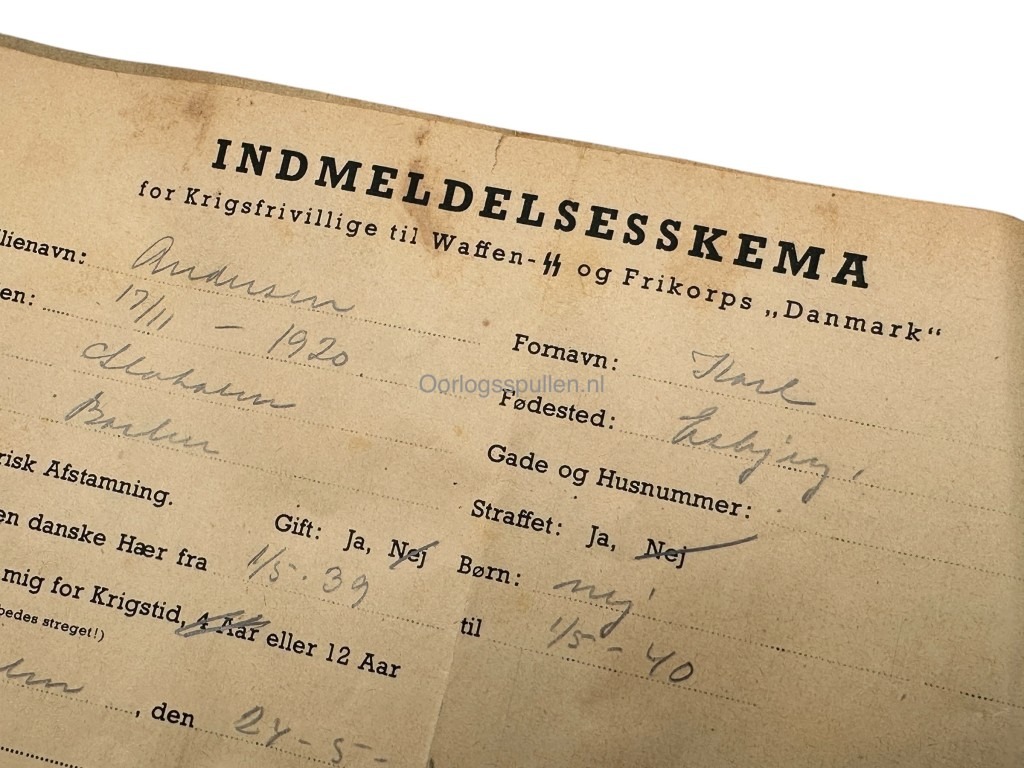 INDMELDELSESSKEMA
for Krigsfrivillige til Waffen-SS og Frikorps „Danmark“
lienavn: Andersen Fornavn: Karl
en: 17/11 - 1920 Fødested: Esbjerg!
Gade og Husnummer:
risk Afstamning. Straffet: Ja, Nej
Gift: Ja, Nej Børn: nej!
en danske Hær fra 1/5. 39 til 1/5 - 40
mig for Krigstid, 4 Aar eller 12 Aar
bedes streget!)
, den 24 - 5 -
Oorlogsspullen.nl